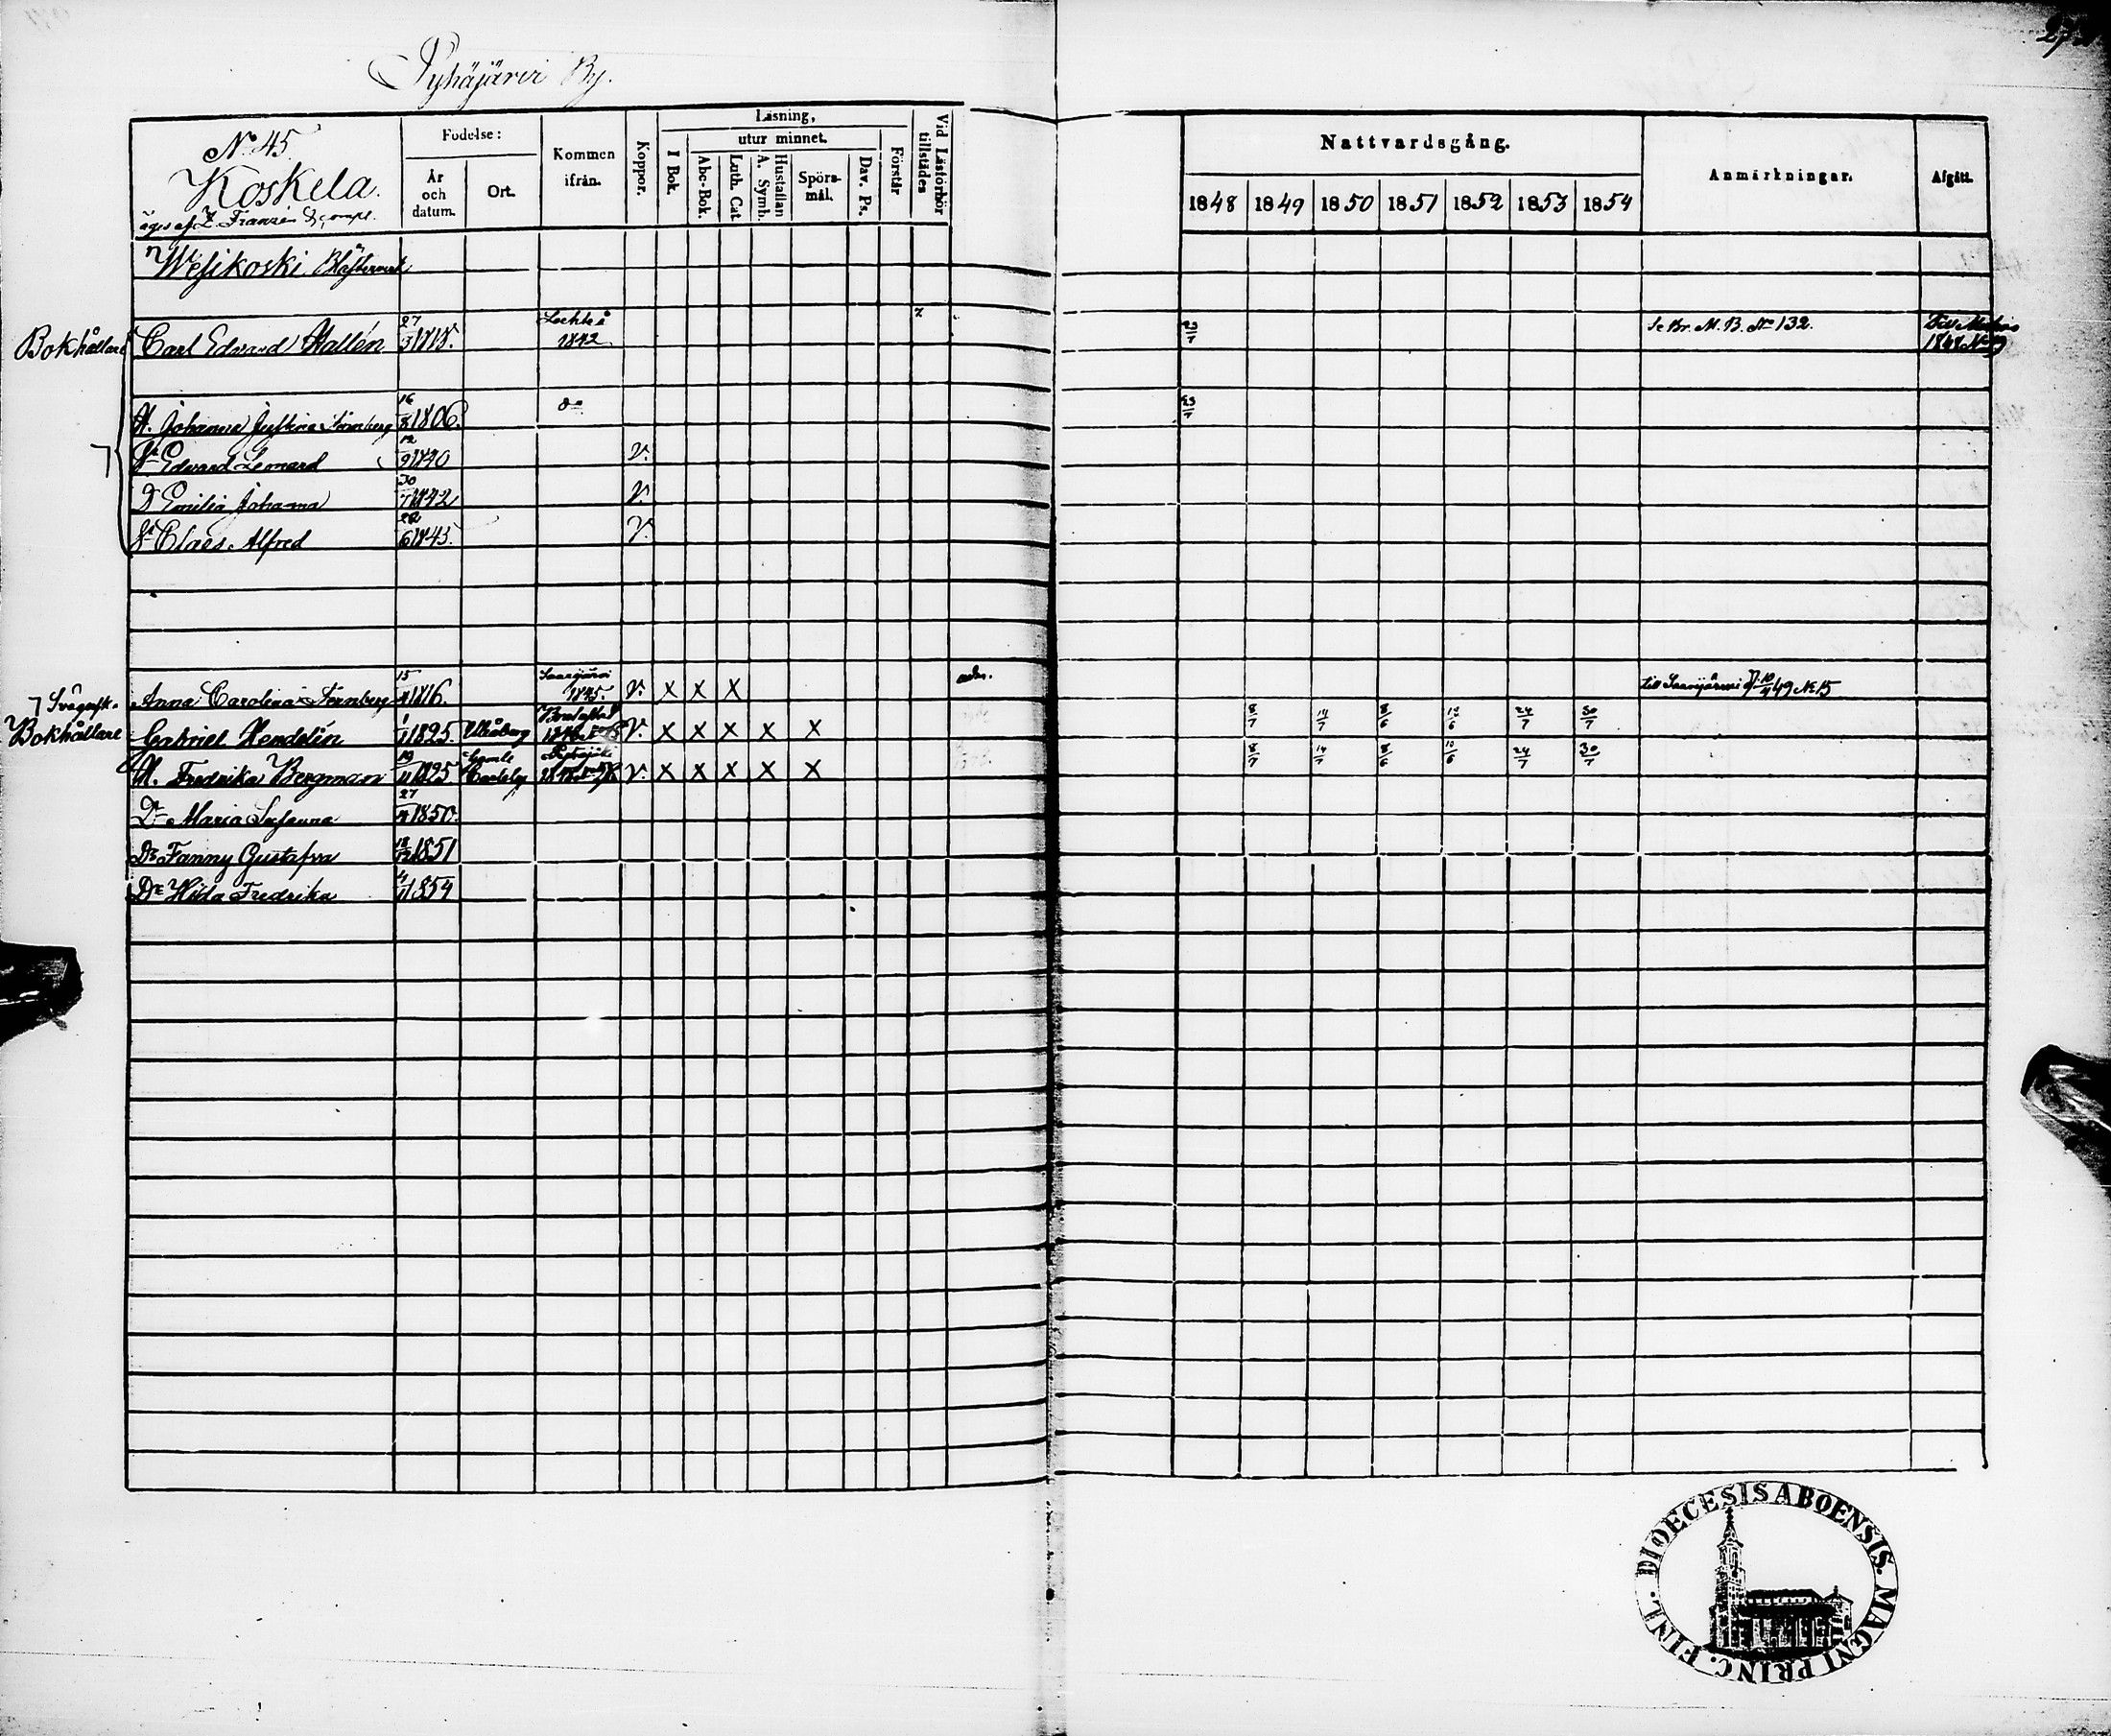 Pyhäjärvi By.
No 45.
Koskela.
äges af Z. Franzén & comp.
Födelse:
År och datum.
Ort.
Kommen ifrån.
Koppor.
Läsning,
utur minnet.
I Bok.
Abc-Bok.
Luth. Cat.
Hustaflan A. Symb.
Spörsmål.
Dav. Ps.
Förstår
Vid Läsförhör tillstädes
Nattvardsgång.
1848 1849 1850 1851 1852 1853 1854
Anmärkningar.
Afgått.
Wesikoski
Bokhållare Carl Edvard Hallén 27/3 1818. 1842 23/7 Se Br. M. B. No 132. 1848
H. Johanna Justina 16/8 1806. do 23/7
Sn Edvard Leonard 12/9 1840 V.
D Emilia Johanna 30/7 1842 V.
Sn Claes Alfred 6 1843. V.
Anna Carolina 15 1816. Saarijärvi 1845. V. X X X till Saarijärvi 49 No 15
Bokhållare Gabriel Hendelin 1/1 1825 Uleåborg V. X X X X X 8/7 14/7 8/6 12/6 24/7 30/7
H. Fredrika Bergman 1825 Gamle Carleby V. X X X X X 8/7 14/7 8/6 24/7 30/7
Dr Maria Susanna 27 1850.
Dr Fanny Gustafva 18/12 1851
Dr Hilda Fredrika 4/11 1854
DIOECESIS ABOENSIS. MAGNI PRINC. FINL.